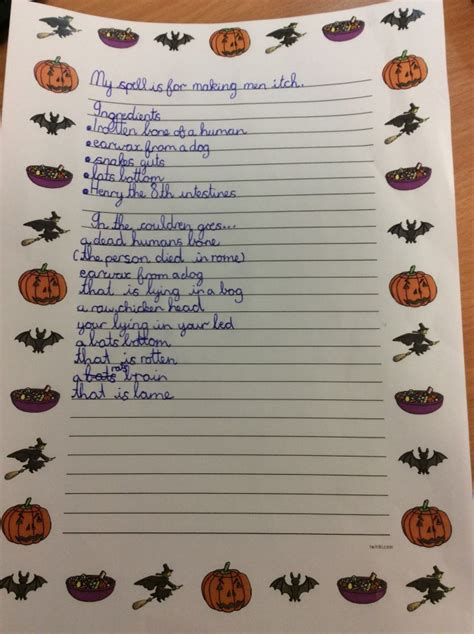 My spell is for making men itch.
Ingredients
• 1 rotten bone of a human
• earwax from a dog
• snakes guts
• bats bottom
• Henry the 8th intestines
In the couldren goes...
a dead humans bone
(the person died in rome)
earwax from a dog
that is lying in a bog
a raw chicken head
your lying in your bed
a bats bottom
that is rotten
a bats rats brain
that is lame
twinkl.com